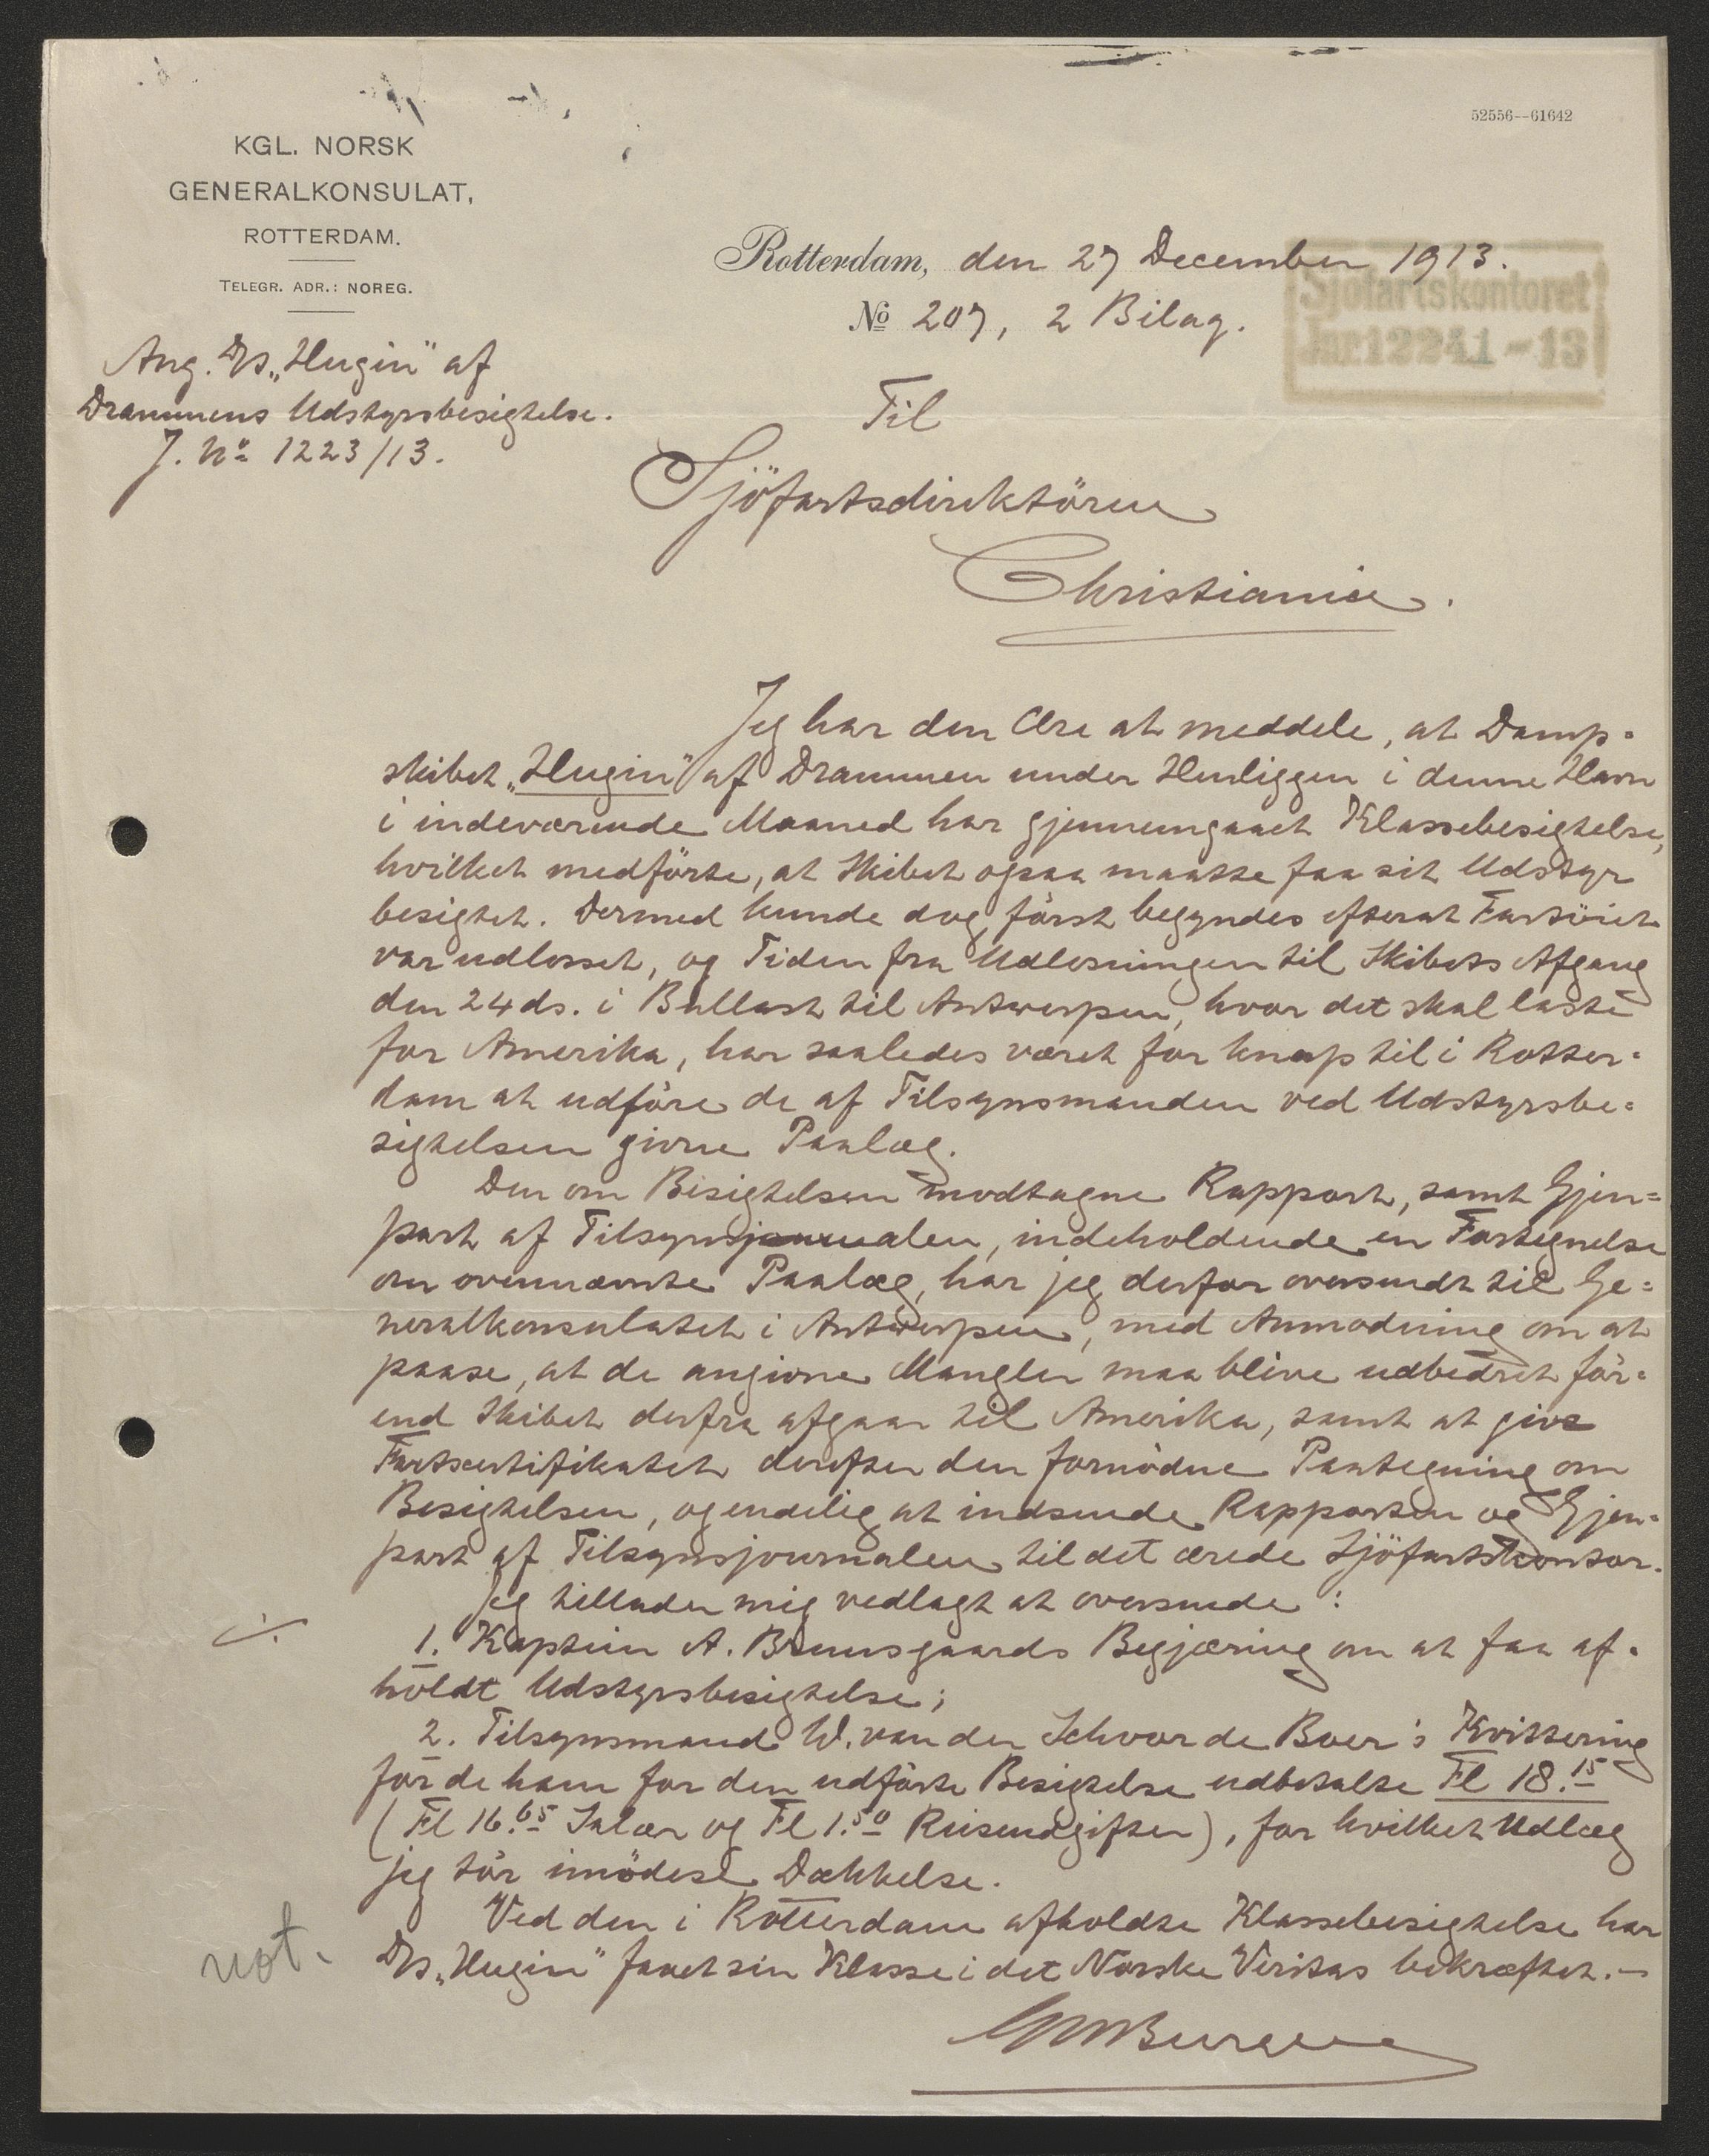 52556--61642
KGL. NORSK
GENERALKONSULAT,
ROTTERDAM.
TELEGR. ADR.: NOREG.
Rotterdam, den 27 December 1913.
No 207, 2 Bilag.
Sjøfartskontoret
Jnr 12241-13
Ang. D/S „Hugin" af
Drammens Udstyrsbesigtelse.
J. No 1223/13.
Til
Sjöfartsdirektören
Christiania.
Jeg har den Ære at meddele, at Damp=
skibet „Hugin" af Drammen under Henliggen i denne Havn
i indeværende Maaned har gjennemgaaet Klassebesigtelse,
hvilket medförte, at Skibet ogsaa maatte faa sit Udstyr
besigtet. Dermed kunde dog först begyndes efterat Fartöiet
var udlosset, og Tiden fra Udlosningen til Skibets Afgang
den 24 ds. i Ballast til Antwerpen, hvor det skal laste
for Amerika, har saaledes været for knap til i Rotter=
dam at udföre de af Tilsynsmanden ved Udstyrsbe=
sigtelsen givne Paalæg.
Den om Besigtelsen modtagne Rapport, samt Gjen=
part af Tilsynsjournalen, indeholdende en Fortegnelse
om ovennævnte Paalæg, har jeg derfor oversendt til Ge=
neralkonsulatet i Antwerpen, med Anmodning om at
paase, at de angivne Mangler maa blive udbedret för=
end Skibet derfra afgaar til Amerika, samt at give
Fartscertifikatet derefter den fornödne Paategning om
Besigtelsen, og endelig at indsende Rapporten og Gjen=
part af Tilsynsjournalen til det ærede Sjöfartskontor.
Jeg tillader mig vedlagt at oversende:
1. Kaptein A. Bruusgaards Begjæring om at faa af=
holdt Udstyrsbesigtelse;
2. Tilsynsmand W. van der Schoor de Boer's Kvittering
for de ham for den udförte Besigtelse udbetalte Fl 18.15
(Fl 16.65 Salær og Fl 1.50 Reiseudgifter), for hvilket Udlæg
jeg tör imödese Dækkelse.
Ved den i Rotterdam afholdte Klassebesigtelse har
D/S „Hugin" faaet sin Klasse i det Norske Veritas bekræftet.—
not.